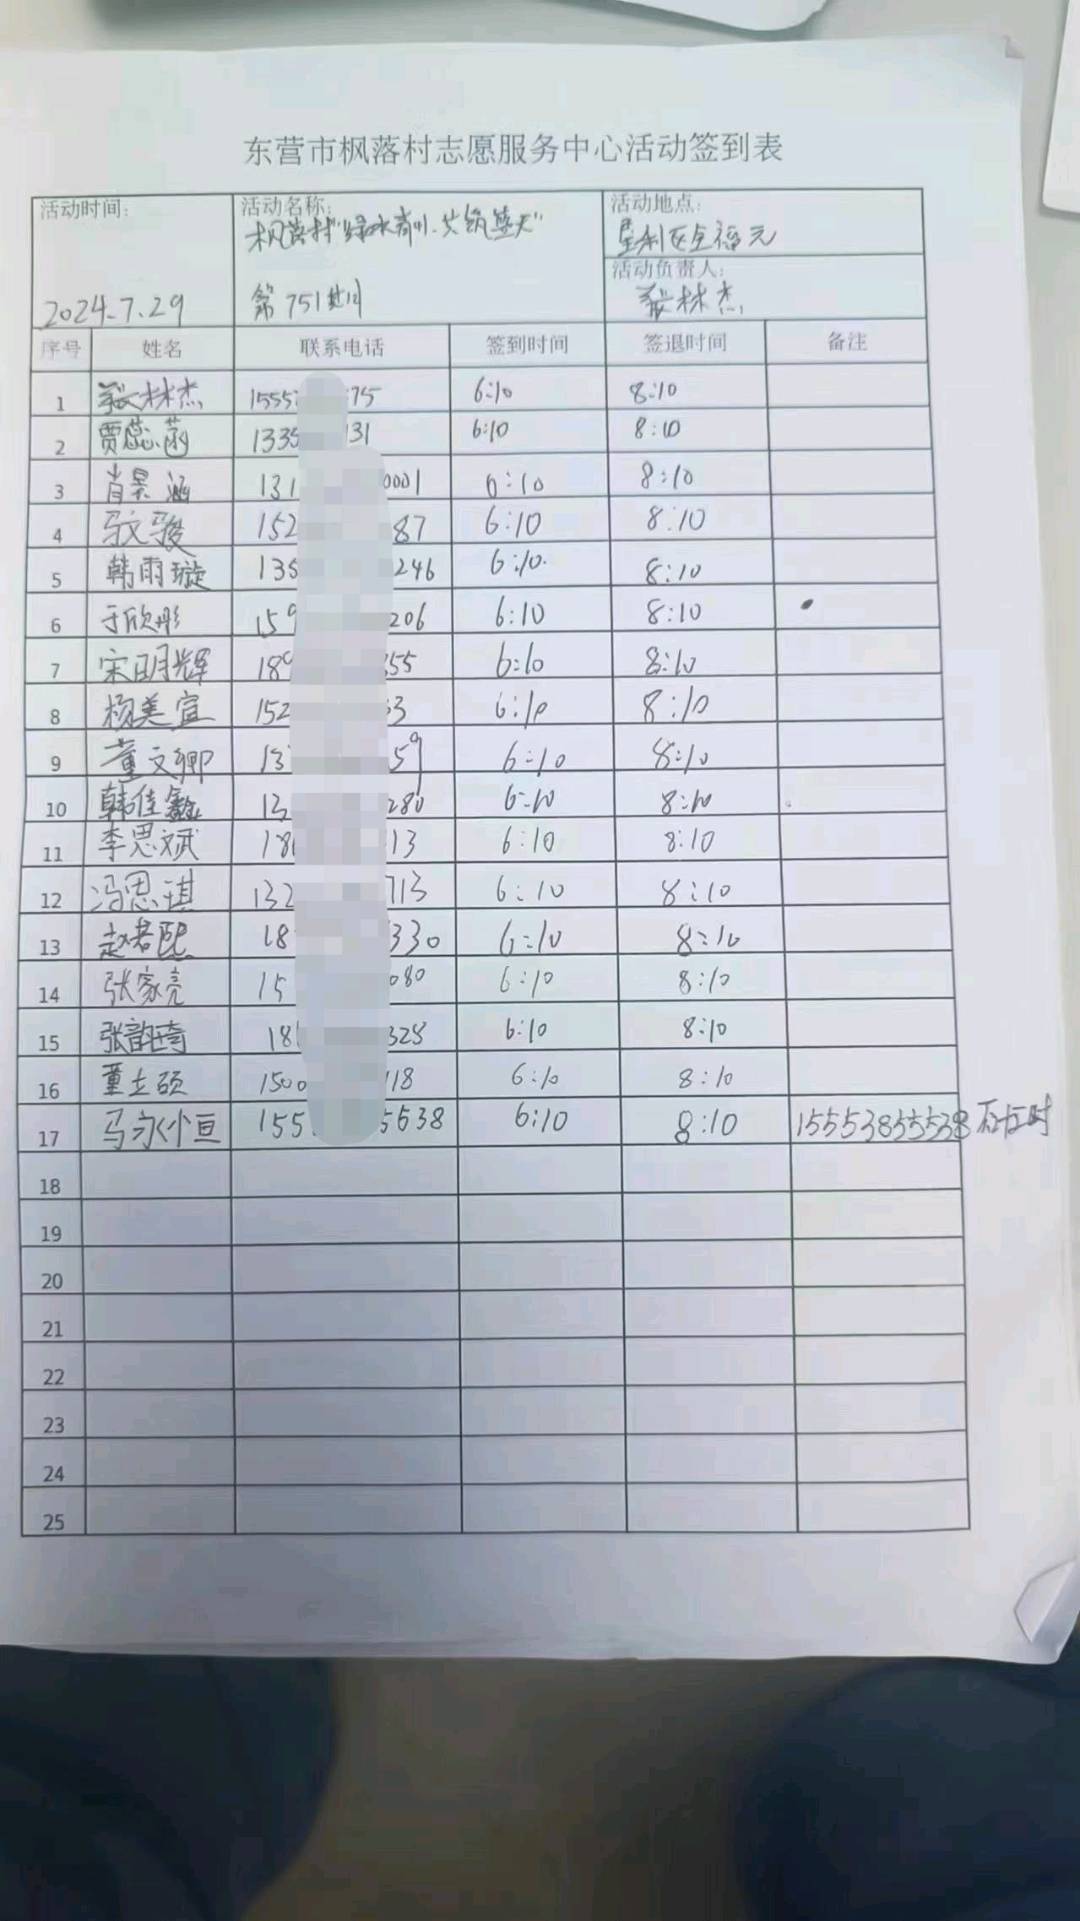 东营市枫落村志愿服务中心活动签到表
活动时间: 活动名称: 活动地点:
枫落村"绿水青川、共筑蓝天" 垦利区全福元
活动负责人:
2024.7.29 第751期 张林杰
序号 姓名 联系电话 签到时间 签退时间 备注
1 张林杰 1555 75 6:10 8:10
2 贾蕊菡 1335 131 6:10 8:10
3 肖景涵 131 0001 6:10 8:10
4 马文骏 152 87 6:10 8:10
5 韩雨璇 135 246 6:10 8:10
6 于欣彤 159 206 6:10 8:10
7 宋明辉 189 355 6:10 8:10
8 杨美宣 152 33 6:10 8:10
9 董文卿 13 59 6:10 8:10
10 韩佳鑫 13 280 6:10 8:10
11 李思斌 18 13 6:10 8:10
12 冯思琪 132 713 6:10 8:10
13 赵君熙 18 330 6:10 8:10
14 张家亮 15 080 6:10 8:10
15 张韵琦 18 328 6:10 8:10
16 董立硕 150 118 6:10 8:10
17 马永恒 155 5638 6:10 8:10 15553855538
18
19
20
21
22
23
24
25